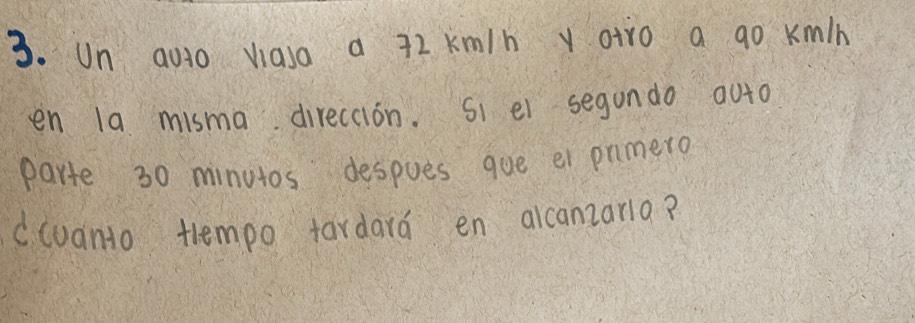 3. Un auto viaja a 72 km/h y otro a 90 km/h
en la misma dirección. Si el segundo auto
parte 30 minutos despues que el primero
¿cuanto tiempo tardará en alcanzarlo?